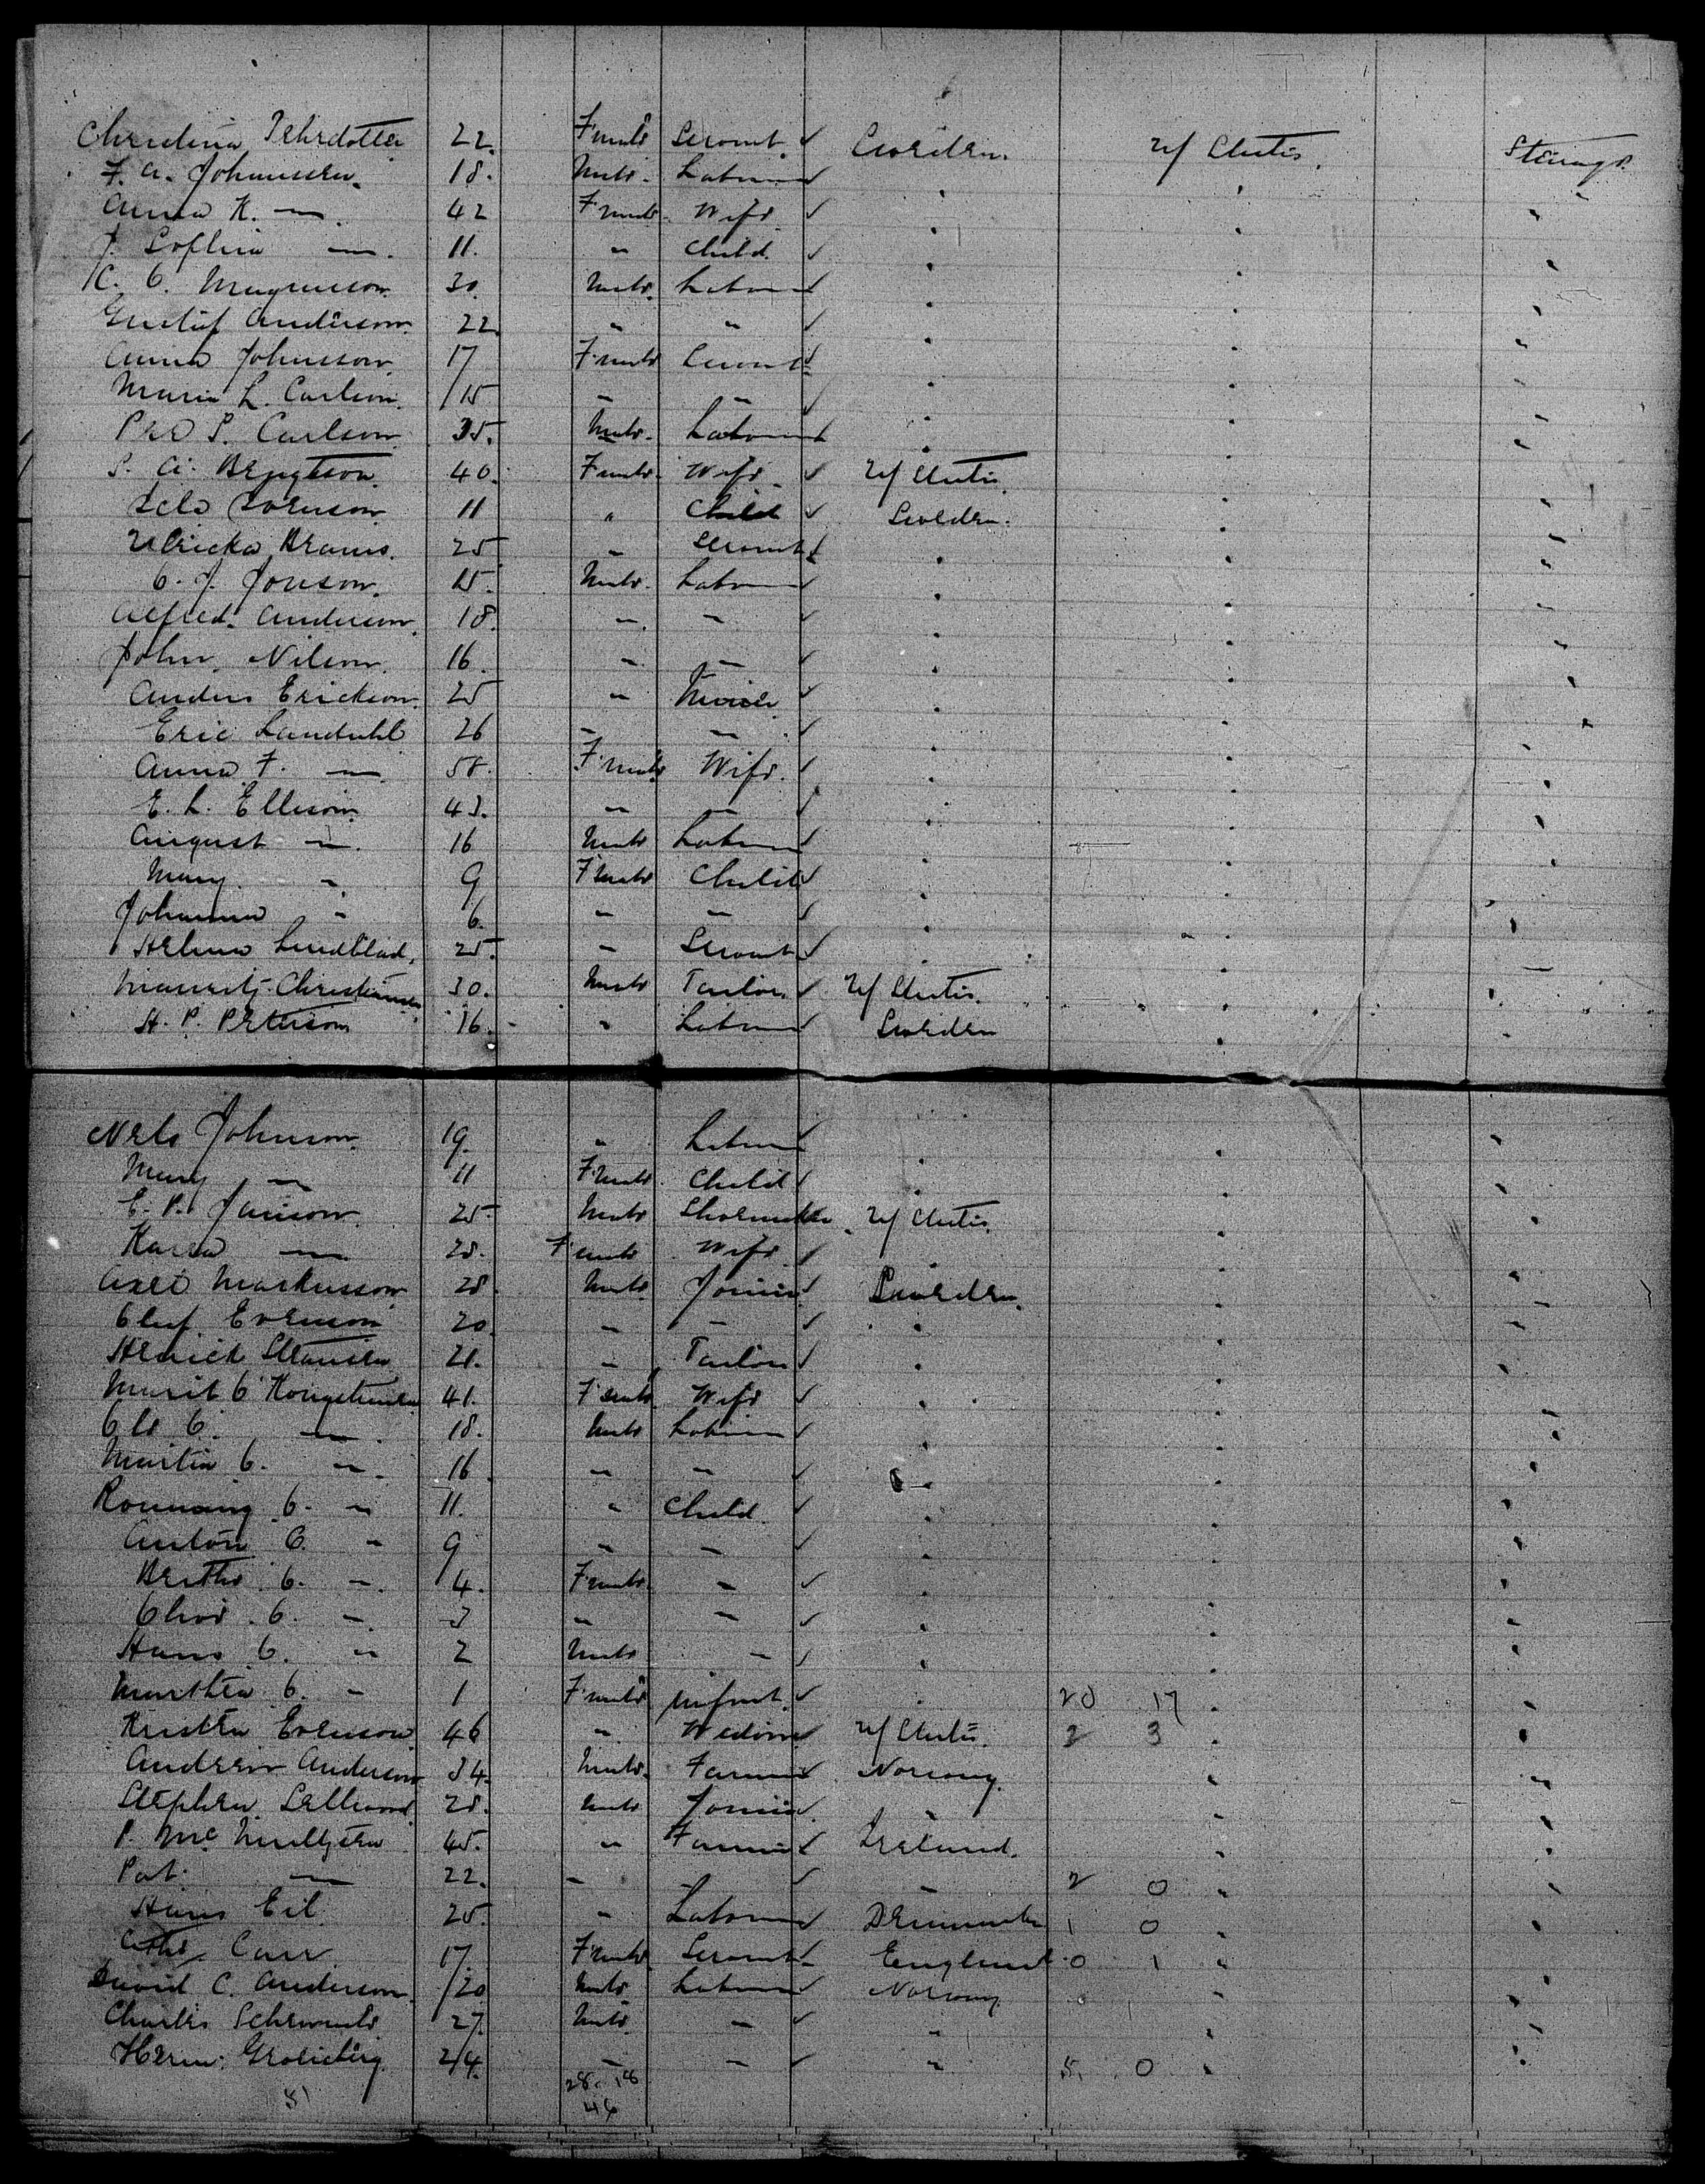 Christina Pehrdotter 22. Female Servant ✓ Sweden. U/ States. Steerage
F. A. Johannsen. 18. Male. Laborer ✓ " " "
Anna K. — 42 Female. Wife ✓ " " "
J. Sophia — 11. " Child. ✓ " " "
K. O. Magnuson. 30. Male. Laborer ✓ " " "
Gustaf Anderson. 22 " " ✓ " " "
Anna Johnsson. 17 Female Servant ✓ " " "
Maria L. Carlson. 15 " " ✓ " " "
P. Carlson 35. Male. Laborer ✓ " " "
S. A. Bengtson. 40. Female. Wife ✓ U/ States. " "
Sorenson. 11 " Child ✓ Sweden. " "
Ulricka Brams. 25 " Servant ✓ " " "
O. J. Jonson. 15. Male. Laborer ✓ " " "
Alfred. Anderson. 18. " " ✓ " " "
John. Nilson. 16. " " ✓ " " "
Anders Erickson. 25 " ✓ " " "
Eric Landahl 26 " " ✓ " " "
Anna F. — 58. Female Wife. ✓ " " "
E. L. Ellison. 43. " " ✓ " " "
August — 16 Male Laborer ✓ " " "
Mary — 9 Female Child ✓ " " "
Johanna " 6. " " ✓ " " "
Helena Lindblad. 25. " Servant ✓ " " "
Mauritz Christiansen 30. Male Tailor ✓ U/ States. " "
H. P. Peterson 16. " Laborer ✓ Sweden " "
Nels Johnson. 19. " Laborer ✓ " " "
Mary — 11 Female. Child ✓ " " "
E. P. Janson. 25 Male Shoemaker U/ States. " "
Karen — 28. Female Wife ✓ " "
Axel Markusson 28 Male. Joiner ✓ Sweden. " "
Oluf Evenson 20. " " ✓ " " "
21. " Tailor ✓ " " "
Marit O. 41. Female Wife ✓ " " "
Ole O. — 18. Male Laborer ✓ " " "
Martin O. — 16 " " ✓ " " "
O. " 11. " Child. ✓ " " "
Anton O. " 9 " " ✓ " " "
Berthe. O. — 4. Female " ✓ " " "
O. — 3 " " ✓ " " "
Hans O. " 2 Male " ✓ " " "
Marthea O. — 1 Female Infant. ✓ " 20 17 " "
Evenson 46 " Widow ✓ U/ States. 2 3 " "
Andrew Anderson 34. Male. Farmer ✓ Norway. " "
Stephen 28. Male Joiner " " "
P. Mc 45. " Farmer ✓ Ireland. " "
Pat. — 22. " ✓ " 2 0 " "
Hans Eil. 25. " Laborer ✓ Denmark 1 0 " "
Carr 17. Female Servant England 0 1 " "
David C. Anderson. 20 Male Laborer ✓ Norway. " " "
Charles 27. Male. " ✓ " " "
Herm. 24. " " ✓ " 5. 0 " "
51 28. 18
46